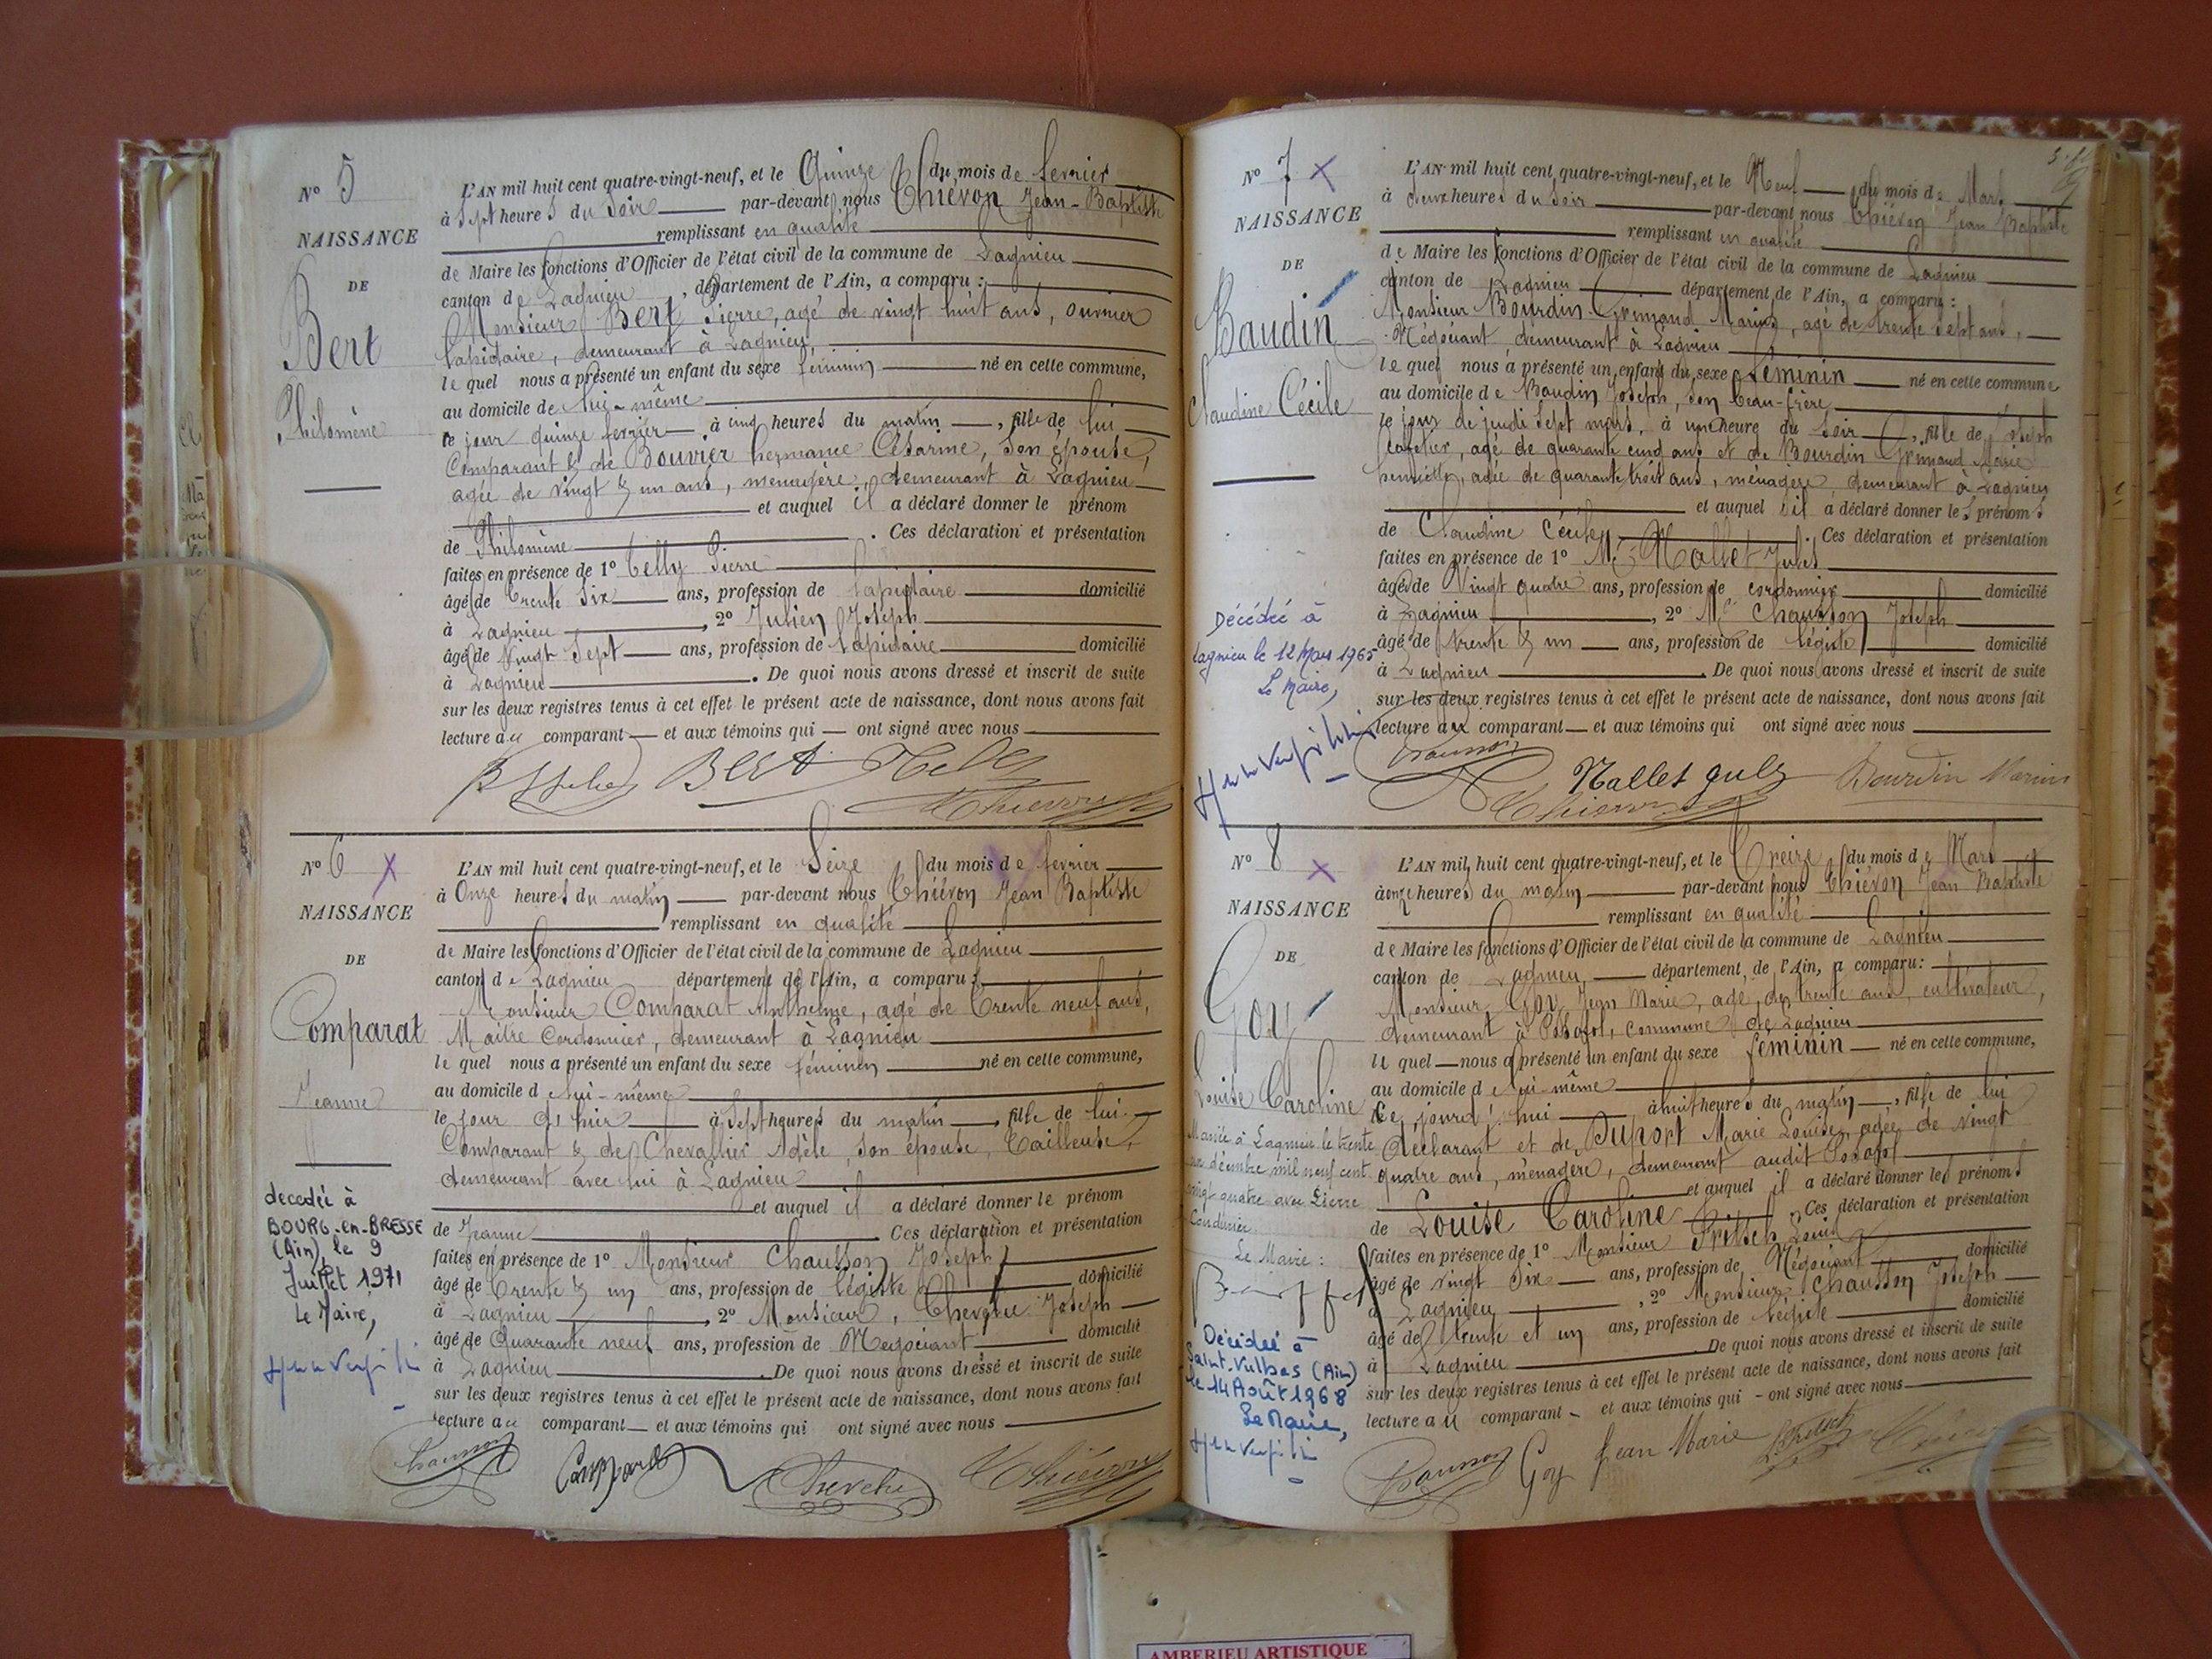 N° 5
NAISSANCE
DE
Bert
Philomène
L'AN mil huit cent quatre-vingt-neuf, et le Quinze du mois de fevrier
à Sept heures du Soir par-devant nous Thiévon Jean-Baptiste
remplissant en qualité
de Maire les fonctions d'Officier de l'état civil de la commune de Lagnieu
canton de Lagnieu, département de l'Ain, a comparu :
Monsieur Bert Pierre, agé de vingt huit ans, ouvrier
lapidaire, demeurant à Lagnieu,
le quel nous a présenté un enfant du sexe féminin né en cette commune,
au domicile de lui-même
ce jour quinze fevrier, à cinq heures du matin, fille de lui
Comparant & de Bouvier hermance Césarine, son épouse,
agée de vingt & un ans, ménagère, demeurant à Lagnieu
et auquel il a déclaré donner le prénom
de Philomène. Ces déclaration et présentation
faites en présence de 1° Telly Pierre
âgé de trente six ans, profession de lapidaire domicilié
à Lagnieu, 2° Julien Joseph
âgé de vingt sept ans, profession de lapidaire domicilié
à Lagnieu. De quoi nous avons dressé et inscrit de suite
sur les deux registres tenus à cet effet le présent acte de naissance, dont nous avons fait
lecture au comparant et aux témoins qui ont signé avec nous
Bert
N° 6 X
NAISSANCE
DE
Comparat
Jeanne
decedée à
BOURG-en-BRESSE
(Ain), le 9
Juillet 1971
Le Maire,
L'AN mil huit cent quatre-vingt-neuf, et le Seize du mois de fevrier
à Onze heures du matin par-devant nous Thiévon Jean Baptiste
remplissant en qualité
de Maire les fonctions d'Officier de l'état civil de la commune de Lagnieu
canton de Lagnieu département de l'Ain, a comparu :
Monsieur Comparat Anthelme, agé de Trente neuf ans,
Maitre Cordonnier, demeurant à Lagnieu
le quel nous a présenté un enfant du sexe féminin né en cette commune,
au domicile de lui-même
le jour d'hier à Sept heures du matin, fille de lui
Comparant & de Chevallier Adèle, son épouse, Tailleuse,
demeurant avec lui à Lagnieu
et auquel il a déclaré donner le prénom
de Jeanne Ces déclaration et présentation
faites en présence de 1° Monsieur Chausson Joseph
âgé de Trente & un ans, profession de légiste domicilié
à Lagnieu, 2° Monsieur, Joseph
âgé de Quarante neuf ans, profession de Négociant domicilié
à Lagnieu. De quoi nous avons dressé et inscrit de suite
sur les deux registres tenus à cet effet le présent acte de naissance, dont nous avons fait
lecture au comparant et aux témoins qui ont signé avec nous
N° 7 X
NAISSANCE
DE
Baudin
Claudine Cécile
Décédée à
Lagnieu le 12 Mars 1965
Le Maire,
L'AN mil huit cent quatre-vingt-neuf, et le Neuf du mois de Mars
à deux heures du soir par-devant nous Thiévon Jean Baptiste
remplissant en qualité
de Maire les fonctions d'Officier de l'état civil de la commune de Lagnieu
canton de Lagnieu département de l'Ain, a comparu :
Monsieur Bourdin Grimaud Marius, agé de trente sept ans,
Négociant demeurant à Lagnieu
le quel nous a présenté un enfant du sexe féminin né en cette commune
au domicile de Baudin Joseph, son beau-frère
le jour de jeudi sept mars, à une heure du soir, fille de Joseph
cafetier, agé de quarante cinq ans et de Bourdin Grimaud Marie
henriette, agée de quarante trois ans, ménagère, demeurant à Lagnieu
et auquel il a déclaré donner les prénoms
de Claudine Cécile. Ces déclaration et présentation
faites en présence de 1° Mr Nallet Jules
âgé de Vingt quatre ans, profession de cordonnier domicilié
à Lagnieu, 2° Mr Chausson Joseph
âgé de trente & un ans, profession de légiste domicilié
à Lagnieu. De quoi nous avons dressé et inscrit de suite
sur les deux registres tenus à cet effet le présent acte de naissance, dont nous avons fait
lecture au comparant et aux témoins qui ont signé avec nous
Chausson
Nallet Jules Bourdin Marius
N° 8 X
NAISSANCE
DE
Goy
Louise Caroline
Mariée à Lagnieu le trente
décembre mil neuf cent
vingt quatre avec Pierre
Le Maire :
Décédée à
Saint-Vulbas (Ain)
le 14 Août 1968
Le Maire,
L'AN mil huit cent quatre-vingt-neuf, et le Treize du mois de Mars
à onze heures du matin par-devant nous Thiévon Jean Baptiste
remplissant en qualité
de Maire les fonctions d'Officier de l'état civil de la commune de Lagnieu
canton de Lagnieu, département de l'Ain, a comparu :
Monsieur Goy Jean Marie, agé de trente ans, cultivateur,
demeurant à Posafol, commune de Lagnieu
le quel nous a présenté un enfant du sexe féminin né en cette commune,
au domicile de lui-même
Ce jourd'hui à huit heures du matin, fille de lui
déclarant et de Duport Marie Louise, agée de vingt
quatre ans, ménagère, demeurant audit Posafol
et auquel il a déclaré donner les prénoms
de Louise Caroline. Ces déclaration et présentation
faites en présence de 1° Monsieur Fritsch Louis
âgé de vingt six ans, profession de Négociant domicilié
à Lagnieu, 2° Monsieur Chausson Joseph
âgé de trente et un ans, profession de légiste domicilié
à Lagnieu De quoi nous avons dressé et inscrit de suite
sur les deux registres tenus à cet effet le présent acte de naissance, dont nous avons fait
lecture au comparant et aux témoins qui ont signé avec nous
Chausson Goy Jean Marie
AMBERIEU ARTISTIQUE